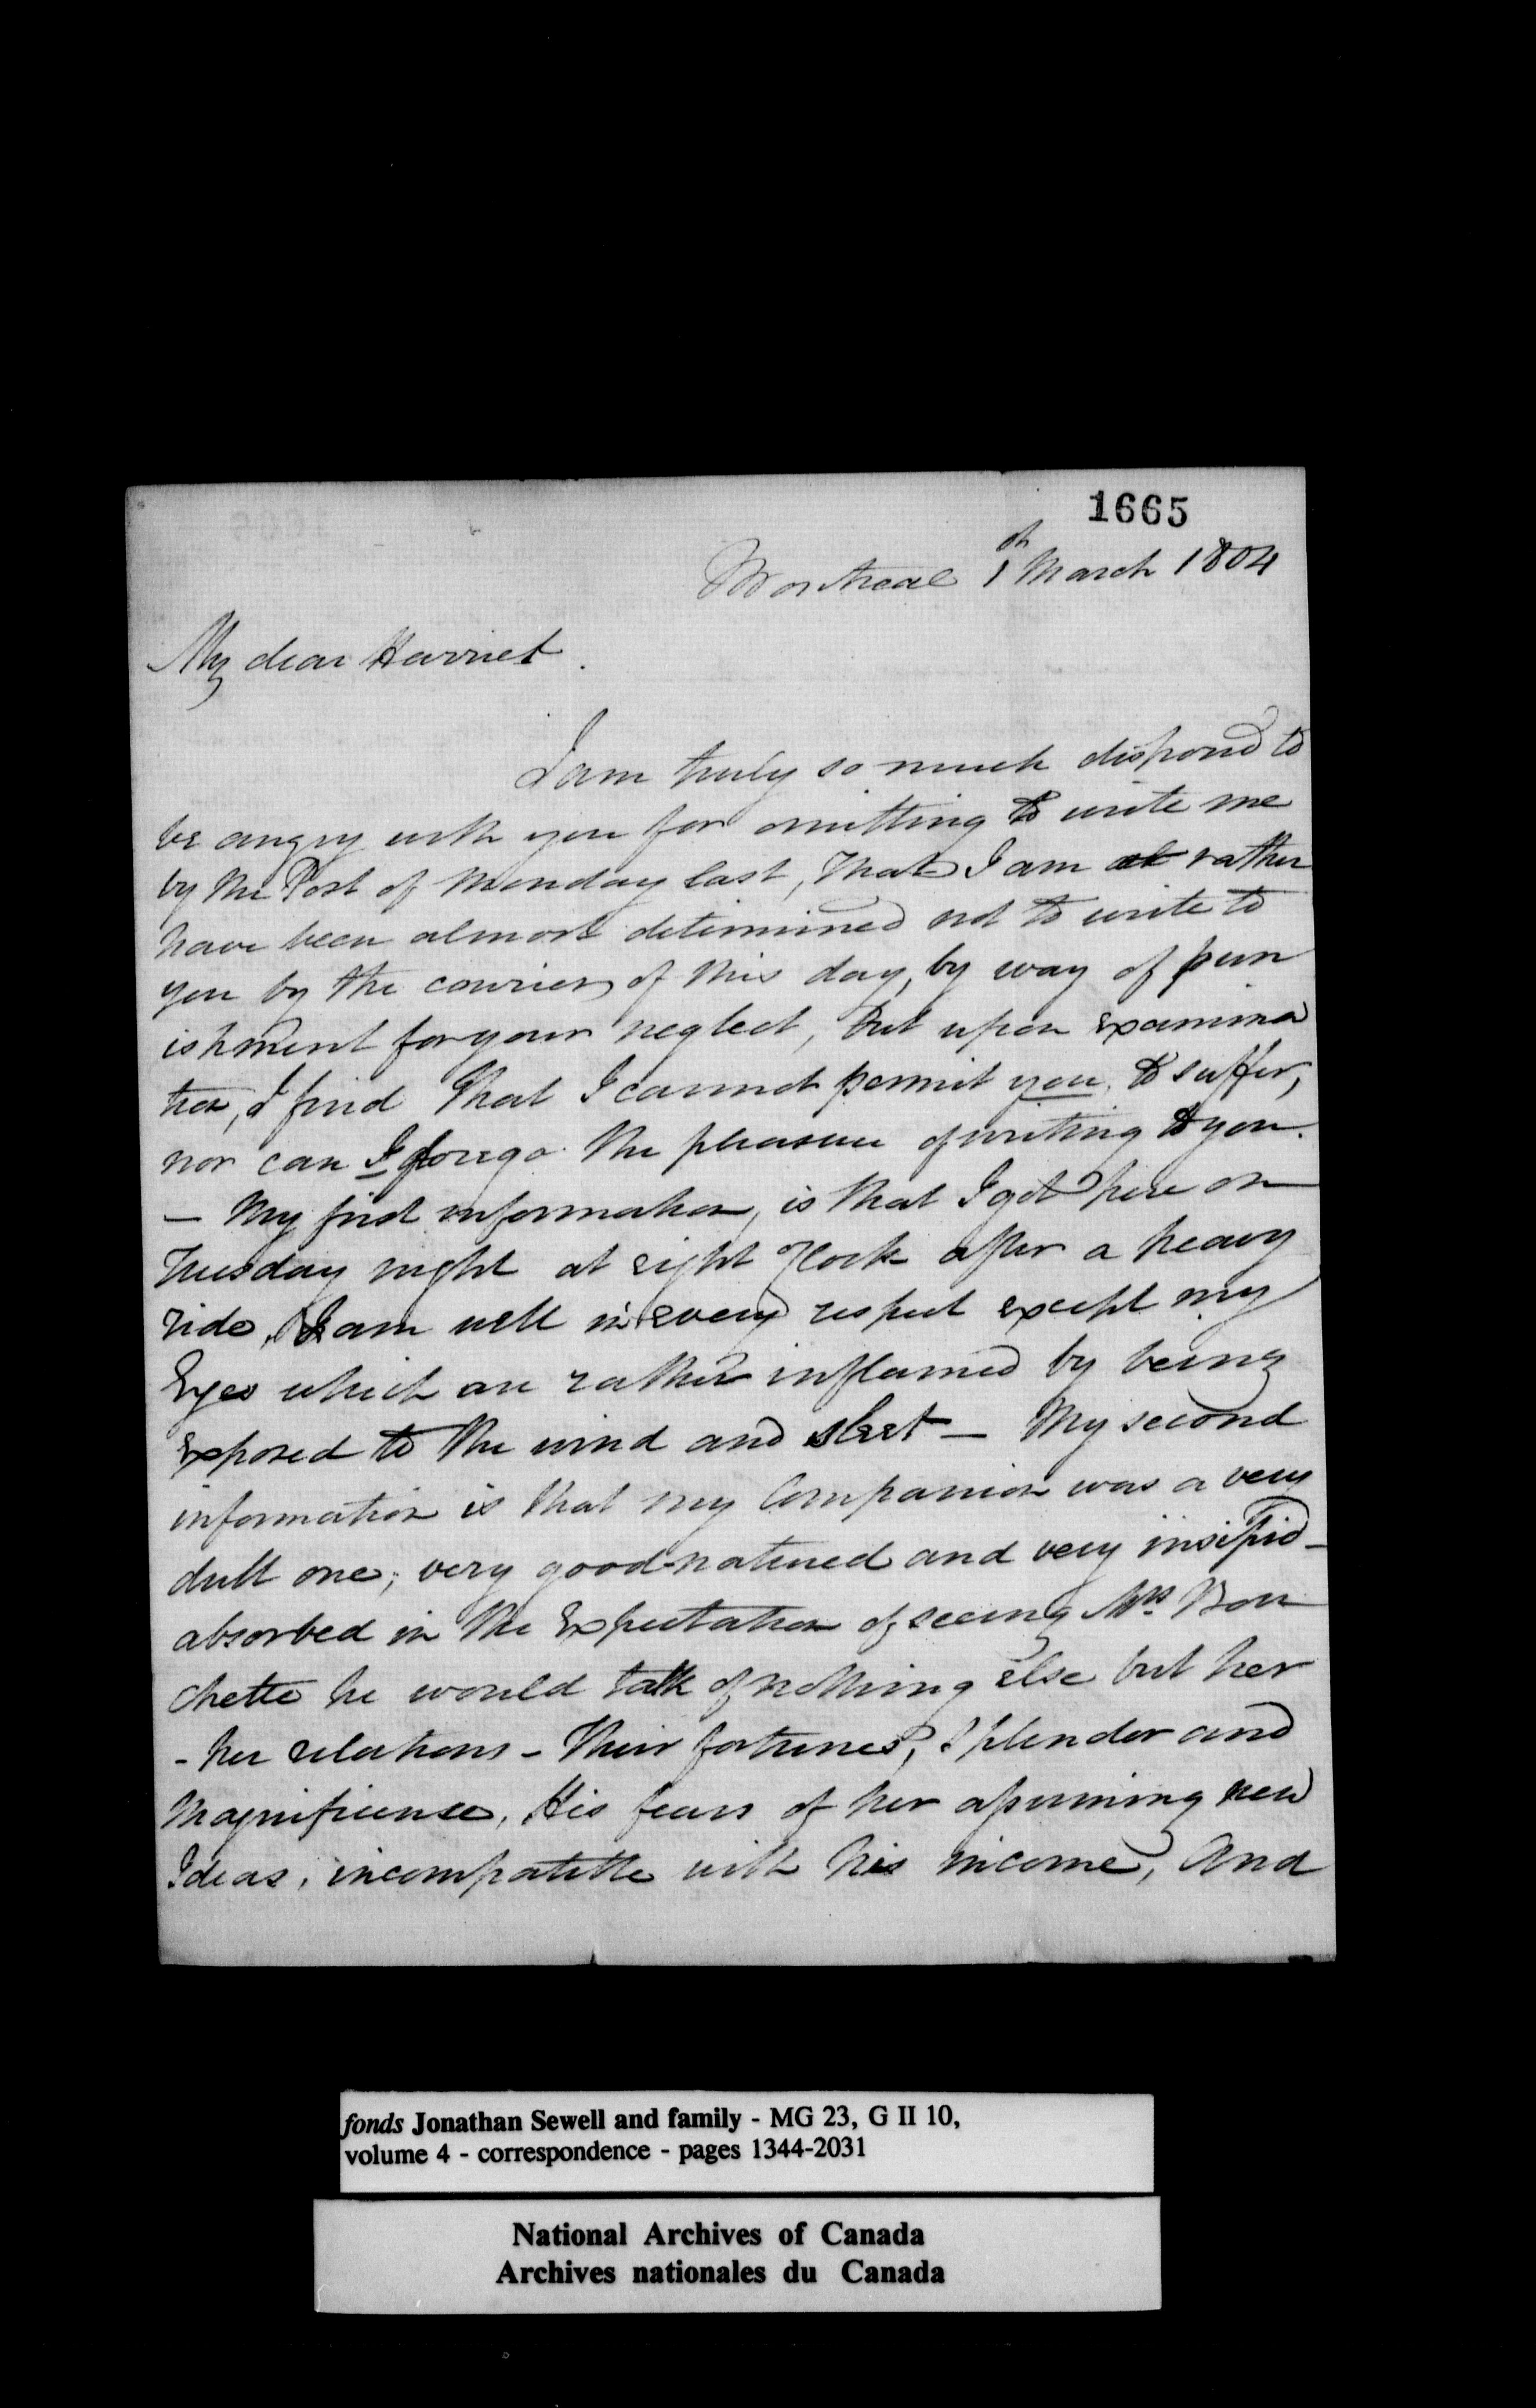 1665
Montreal 1th March 1804
My dear Harriet.
I am truly so much disposed to
be angry with you for omitting to write me
by the Post of Monday last, that I am at rather
have been almost determined not to write to
you by the courier of this day, by way of pun
ishment for your neglect, but upon examina
tion, I find that I cannot permit you to suffer,
nor can I forego the pleasure of writing to you.
— My first information, is that I got here on
Tuesday night at eight o'Clock after a heavy
ride, I am well in every respect except my
Eyes which are rather inflamed by being
exposed to the wind and sleet — My second
information is that my Companion was a very
dull one; very good-natured and very insipid_
absorbed in the Expectation of seeing Mrs Bou
chette he would talk of nothing else but her
- her relations - their fortunes, splendor and
Magnificence, His fears of her assuming new
Ideas, incompatible with his income, And
fonds Jonathan Sewell and family - MG 23, G II 10,
volume 4 - correspondence - pages 1344-2031
National Archives of Canada
Archives nationales du Canada